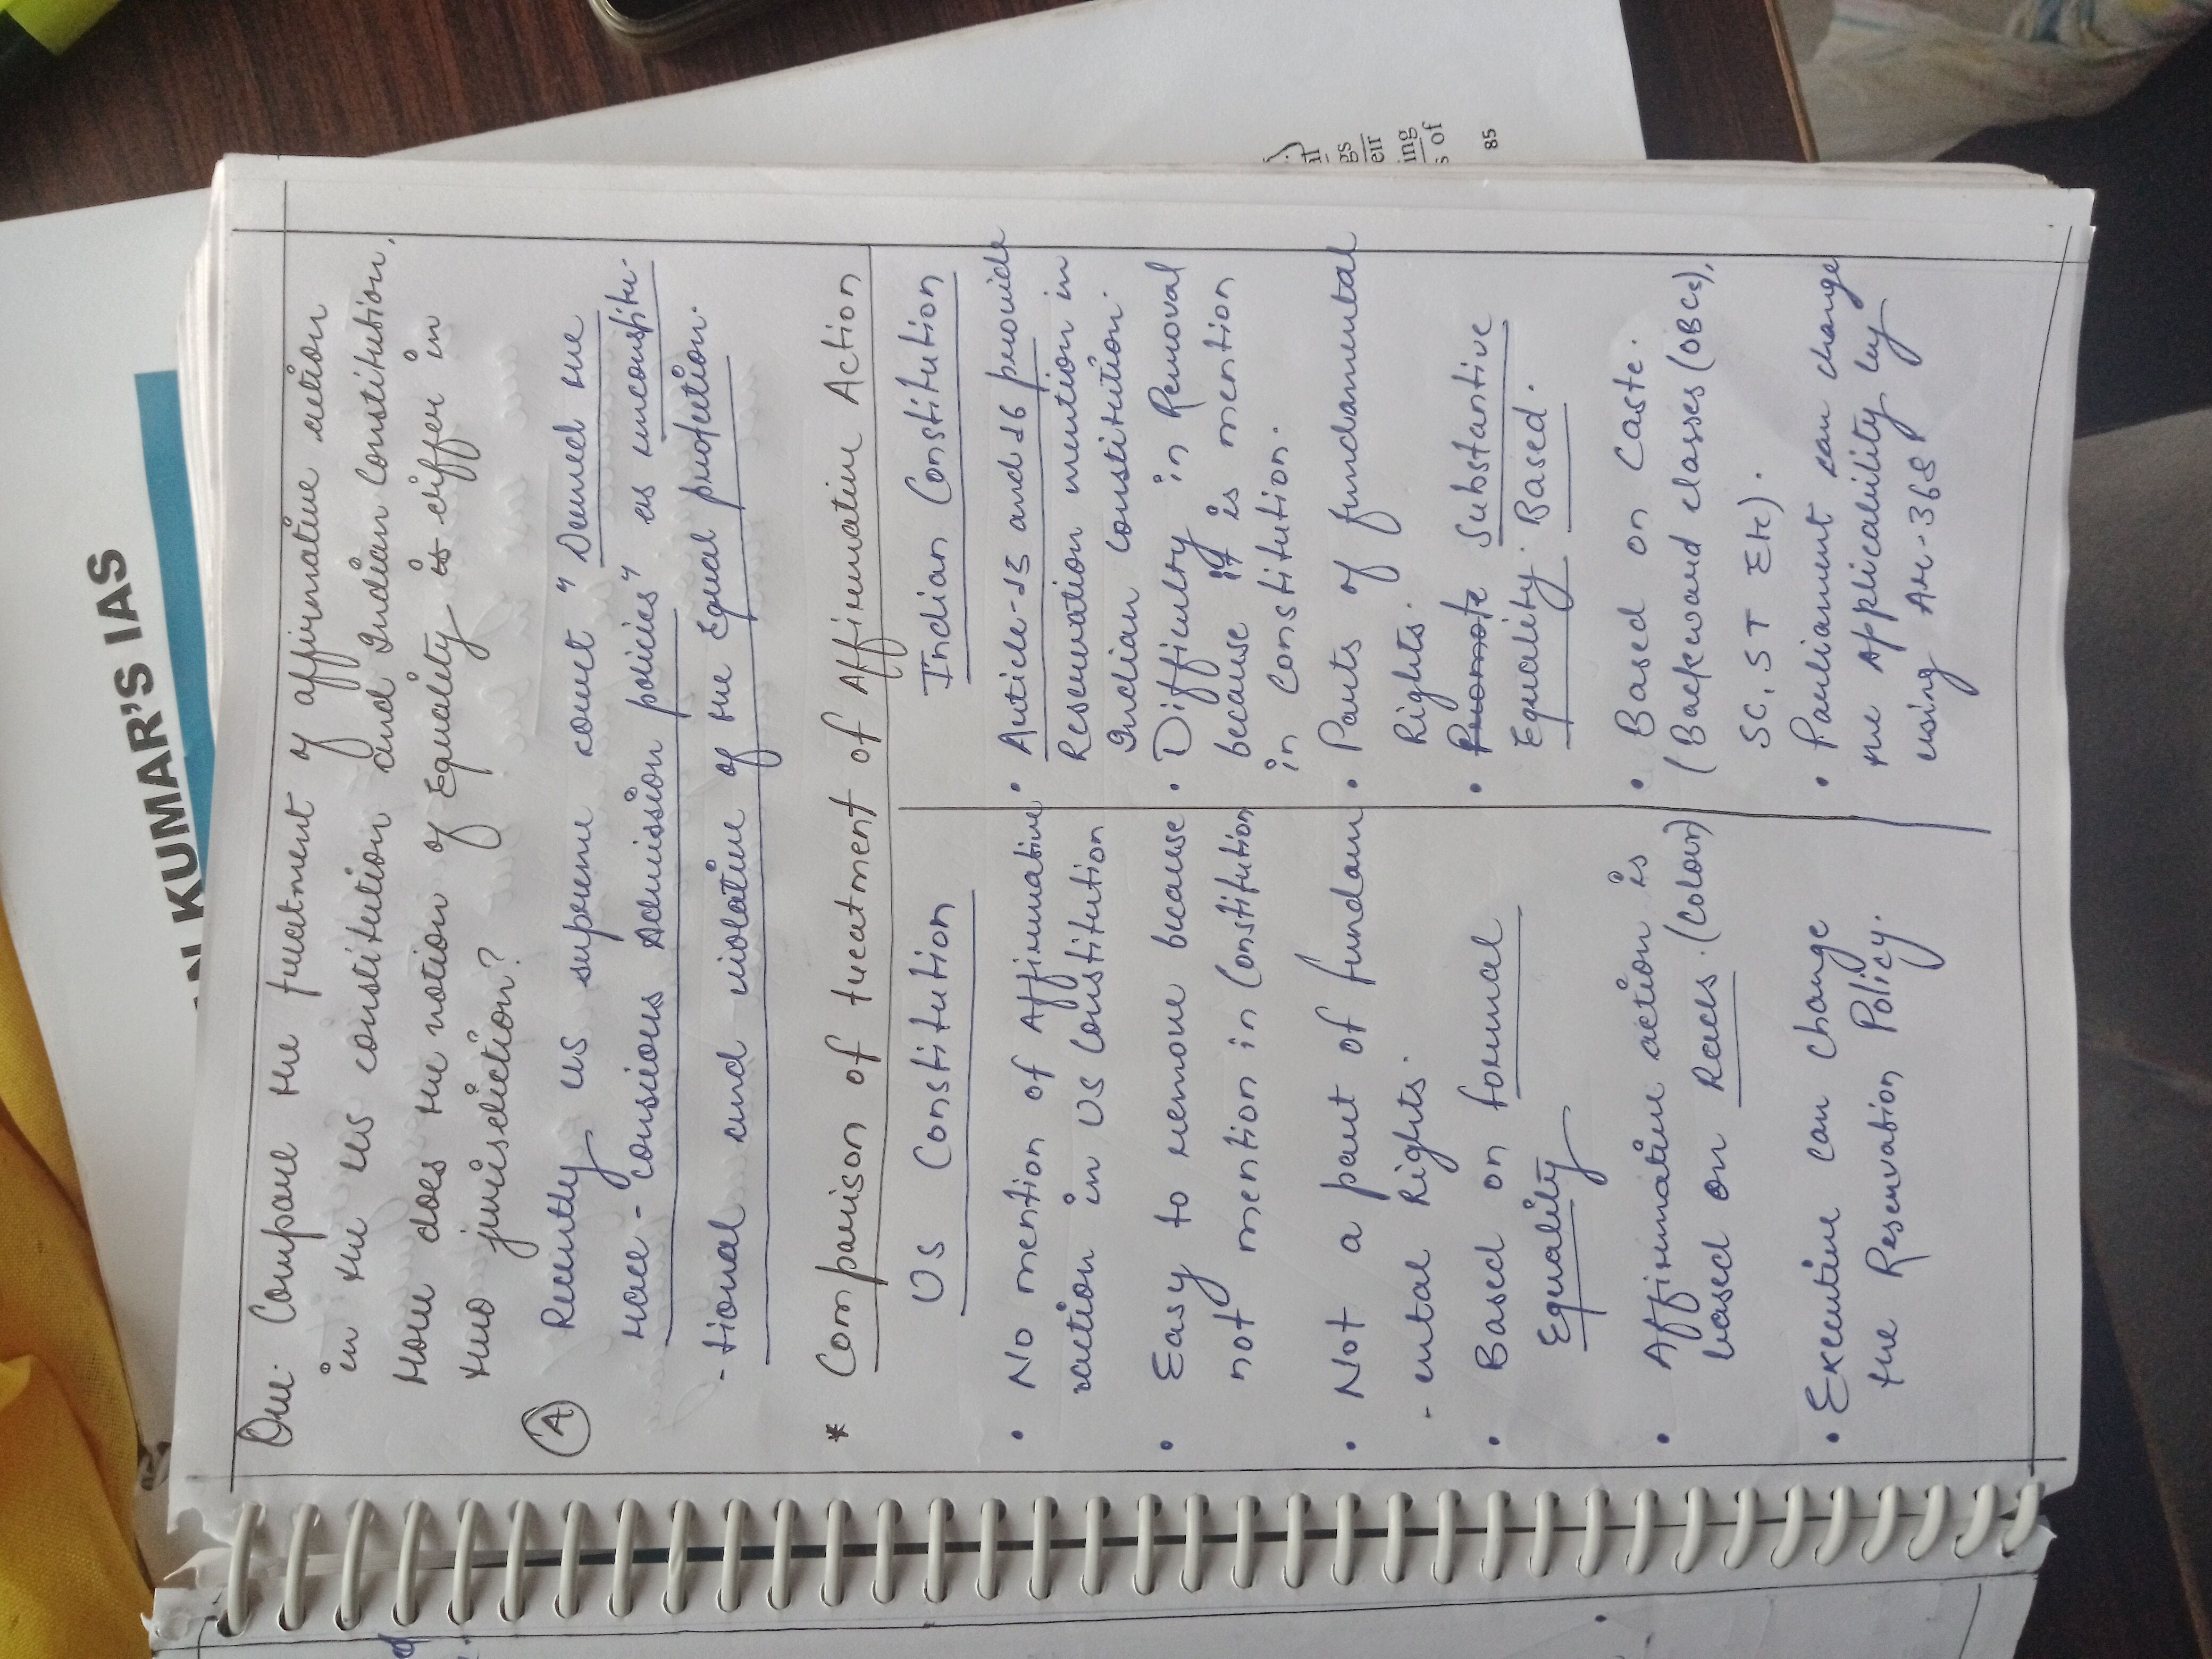 Que: Compare the treatment of affirmative action
in the US constitution and Indian Constitution.
How does the notion of Equality is differ in
two jurisdiction?
(A) Recently US supreme court "Deemed the
race-consious Admission policies" as unconstitu-
-tional and violative of the Equal protection.
* Comparison of treatment of Affirmative Action
US Constitution
• No mention of Affirmative
action in US Constitution
• Easy to remove because
not mention in Constitution
• Not a part of fundam
-ental Rights.
• Based on formal
Equality
• Affirmative action is
based on Races. (Colour)
• Executive can change
the Reservation Policy.
Indian Constitution
• Article-15 and 16 provide
Reservation mention in
Indian Constitution.
• Difficulty in Removal
because it is mention
in Constitution.
• Parts of fundamental
Rights.
• Promote Substantive
Equality Based.
• Based on Caste.
(Backward classes (OBCs),
SC, ST Etc).
• Parliament can change
the Applicability by
using Art-368
N KUMAR'S IAS
gs
eir
ing
s of
85